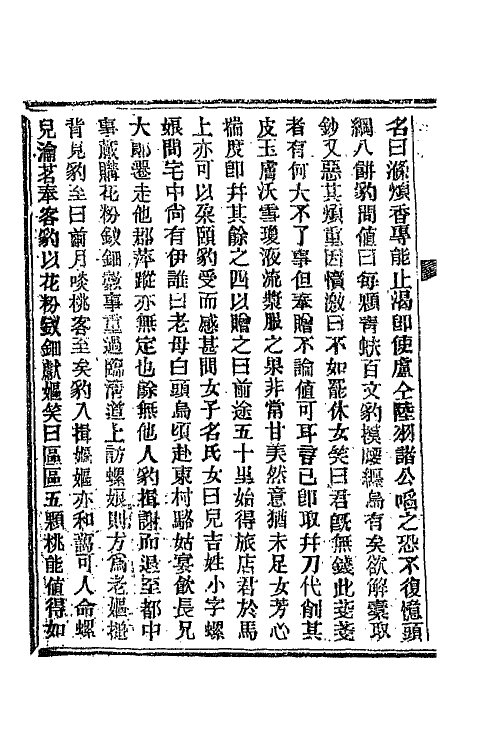 名曰滌煩香專能止渴卽使盧仝陸羽諸公嚐之恐不復憶頭
綱八餅豹問値曰每顆靑蚨百文豹模腰纏烏有矣欲解囊取
鈔又惡其煩重因憤激曰不如罷休女笑曰君旣無錢此戔戔
者有何大不了事但奉贈不論値可耳言已卽取幷刀代削其
皮玉膚沃雪瓊液流漿服之果非常甘美然意猶未足女芳心
揣度卽幷其餘之四以贈之曰前途五十里始得旅店君於馬
上亦可以朶頤豹受而感甚問女子名氏女曰兒吉姓小字螺
娘問宅中尙有伊誰曰老母白頭烏頃赴東村駱姑宴飮長兄
大郞墨走他郡萍蹤亦無定也餘無他人豹揖謝而退至都中
事蕆購花粉釵鈿數事重過臨淸道上訪螺娘則方爲老嫗搥
背見豹至曰前月啖桃客至矣豹入揖嫗嫗亦和藹可人命螺
兒瀹茗奉客豹以花粉釵鈿獻嫗笑曰區區五顆桃能值得如